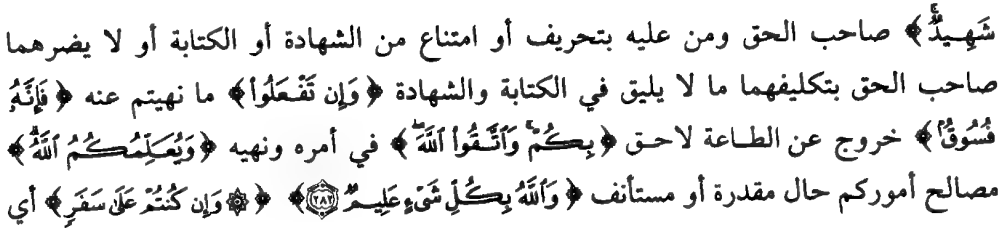 شَهِيدٌۚ﴾ صاحب الحق ومن عليه بتحريف أو امتناع من الشهادة أو الكتابة أو لا يضرهما
صاحب الحق بتكليفهما ما لا يليق في الكتابة والشهادة ﴿وَإِن تَفْعَلُوا۟﴾ ما نهيتم عنه ﴿فَإِنَّهُۥ
فُسُوقٌۢ﴾ خروج عن الطاعة لاحق ﴿بِكُمْۗ وَٱتَّقُوا۟ ٱللَّهَۖ﴾ في أمره ونهيه ﴿وَيُعَلِّمُكُمُ ٱللَّهُۗ﴾
مصالح أموركم حال مقدرة أو مستأنف ﴿وَٱللَّهُ بِكُلِّ شَىْءٍ عَلِيمٌ ۝٢٨٢﴾ ﴿۞ وَإِن كُنتُمْ عَلَىٰ سَفَرٍ﴾ أي